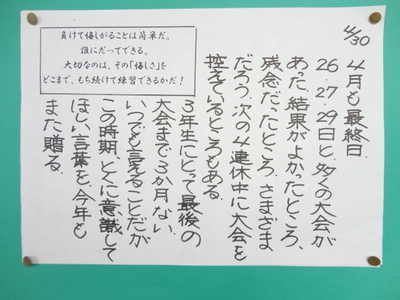 4/30
4月も最終日.
26・27・29日と、多くの大会が
あった。結果がよかったところ、
残念だったところ、さまざま
だろう。次の4連休中に大会を
控えているところもある.
3年生にとって最後の
大会まで3か月ない
いつでも言えることだが
この時期、とくに意識して
ほしい言葉を、今年も
また贈る.
負けて悔しがることは簡単だ。
誰にだってできる。
大切なのは、その「悔しさ」を
どこまで、もち続けて練習できるかだ！